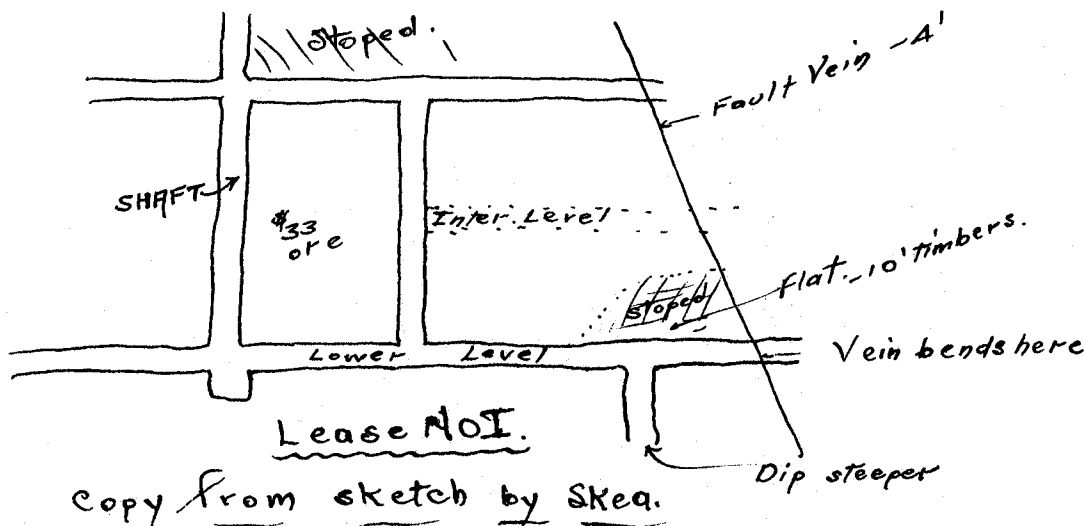 Stoped.
Fault Vein - 4'
SHAFT
$33
ore
Inter. Level
Flat. - 10' timbers.
Stoped
Lower Level
Vein bends here
Lease No I.
Dip steeper
Copy from sketch by Skea.